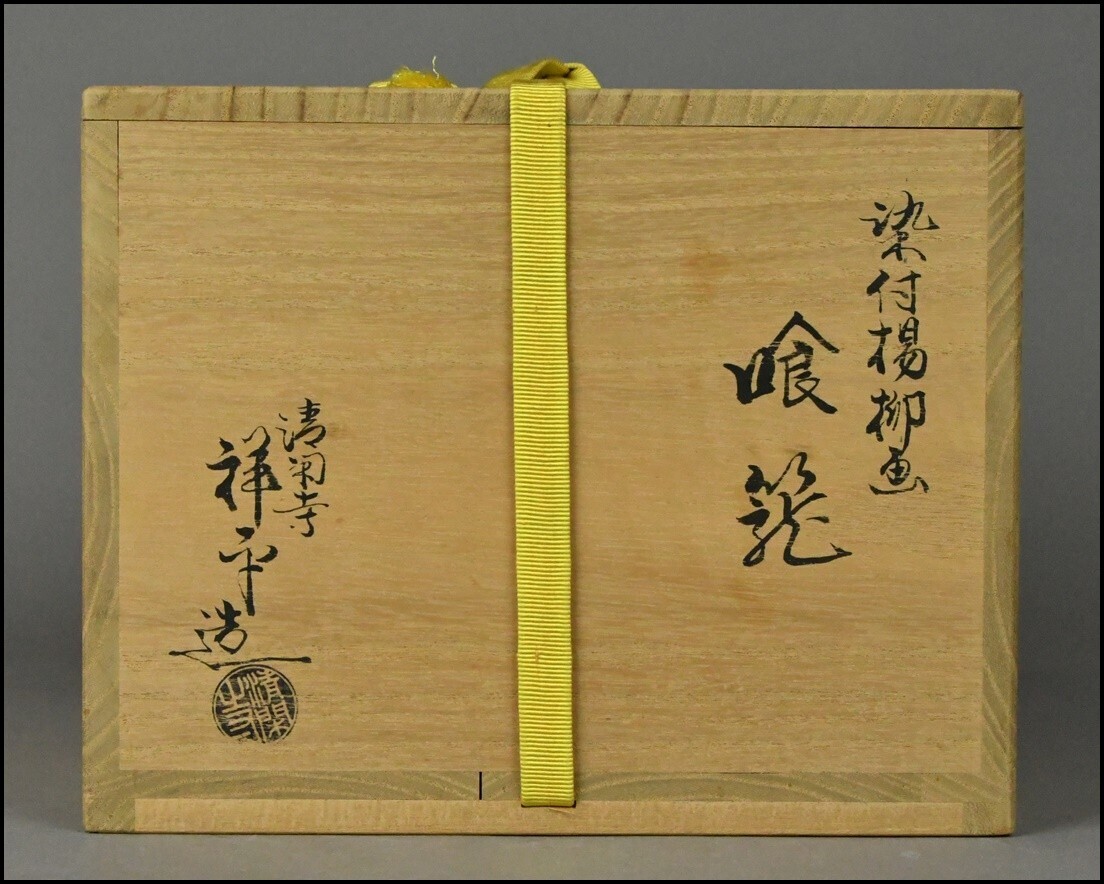 染付楊柳画
喰籠
清閑寺
祥平造
清閑寺